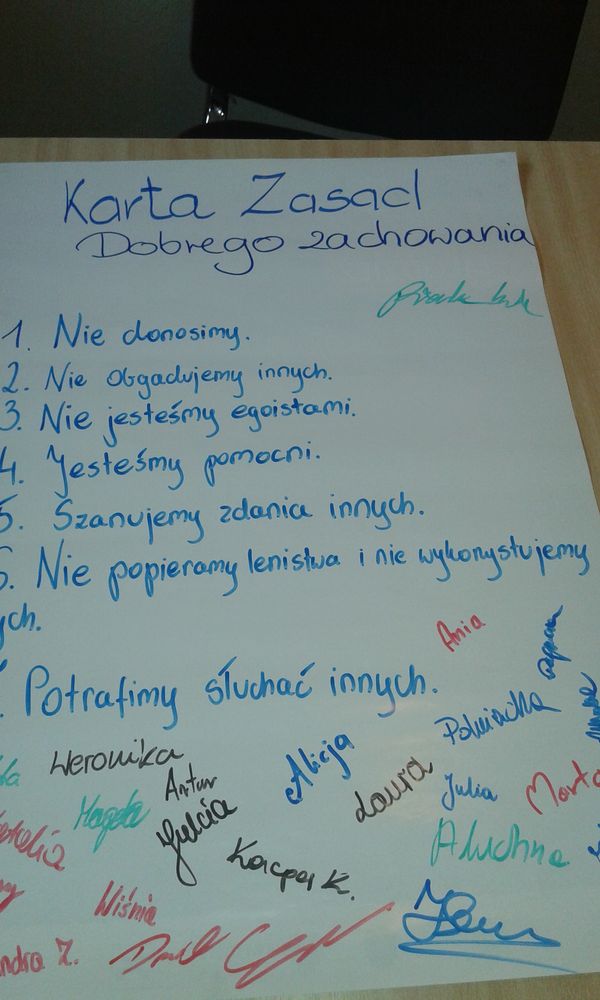 Karta Zasad
Dobrego zachowania
1. Nie donosimy.
2. Nie obgadujemy innych.
3. Nie jesteśmy egoistami.
4. Jesteśmy pomocni.
5. Szanujemy zdania innych.
6. Nie popieramy lenistwa i nie wykorzystujemy
ych.
Potrafimy słuchać innych.
Ania
Weronika
Alicja
Antun
Laura
Julia
Marta
Magda
Julcia
Kacper K.
Aluchna
Wiśnia
ndra Z.